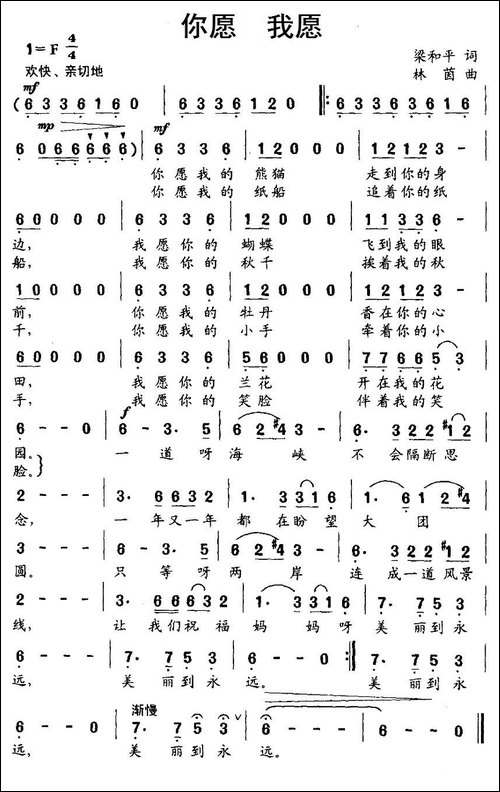 你愿 我愿
1=F 4/4
梁和平 词
欢快、亲切地
林茵 曲
mf
( 6 3 3 6 1 6 0 | 6 3 3 6 1 2 0 |: 6 3 3 6 3 3 6 3 3 6
mp mf
6 0 6 6 6 6 6 6 ) | 6 3 3 6 | 1 2 0 0 0 | 1 2 1 2 3 -
你愿我的 熊猫 走到你的身
你愿我的 纸船 追着你的纸
6 0 0 0 0 | 6 3 3 6 | 1 2 0 0 0 | 1 1 3 3 6 -
边, 我愿你的 蝴蝶 飞到我的眼
船, 我愿你的 秋千 挨着我的秋
1 0 0 0 0 | 6 3 3 6 | 1 2 0 0 0 | 1 2 1 2 3 -
前, 你愿我的 牡丹 香在你的心
千, 你愿我的 小手 牵着你的小
6 0 0 0 0 | 6 3 3 6 | 5 6 0 0 0 | 7 7 6 6 5 3
田, 我愿你的 兰花 开在我的花
手, 我愿你的 笑脸 伴着我的笑
f
6 - - 0 | 6 - 3. 5 | 6 2 #4 3 - | 6. 3 2 2 2 #1 2
园。 一道呀 海峡 不会隔断思
脸。
2 - - - | 3. 6 6 3 2 | 3. 3 3 1 6 | 1. 6 1 2 4
念, 一年又一年 都在盼望 大团
3 - - - | 6 - 3. 5 | 6 2 #4 3 - | 6. 3 2 2 2 #1 2
圆。 只等呀 两岸 连成一道风景
2 - - - | 3. 6 6 6 3 2 | 1. 3 3 1 6 | 7. 7 5 3
线, 让我们祝福 妈妈呀 美丽到永
6 - - 0 | 7. 7 5 3 | 6 - - 0 :| 7. 7 5 3
远, 美丽到永 远。 美丽到永
渐慢
6 - - 0 | 7. 7 5 3 | 6 - - - | 6 - - 0 ||
远, 美丽到永 远。